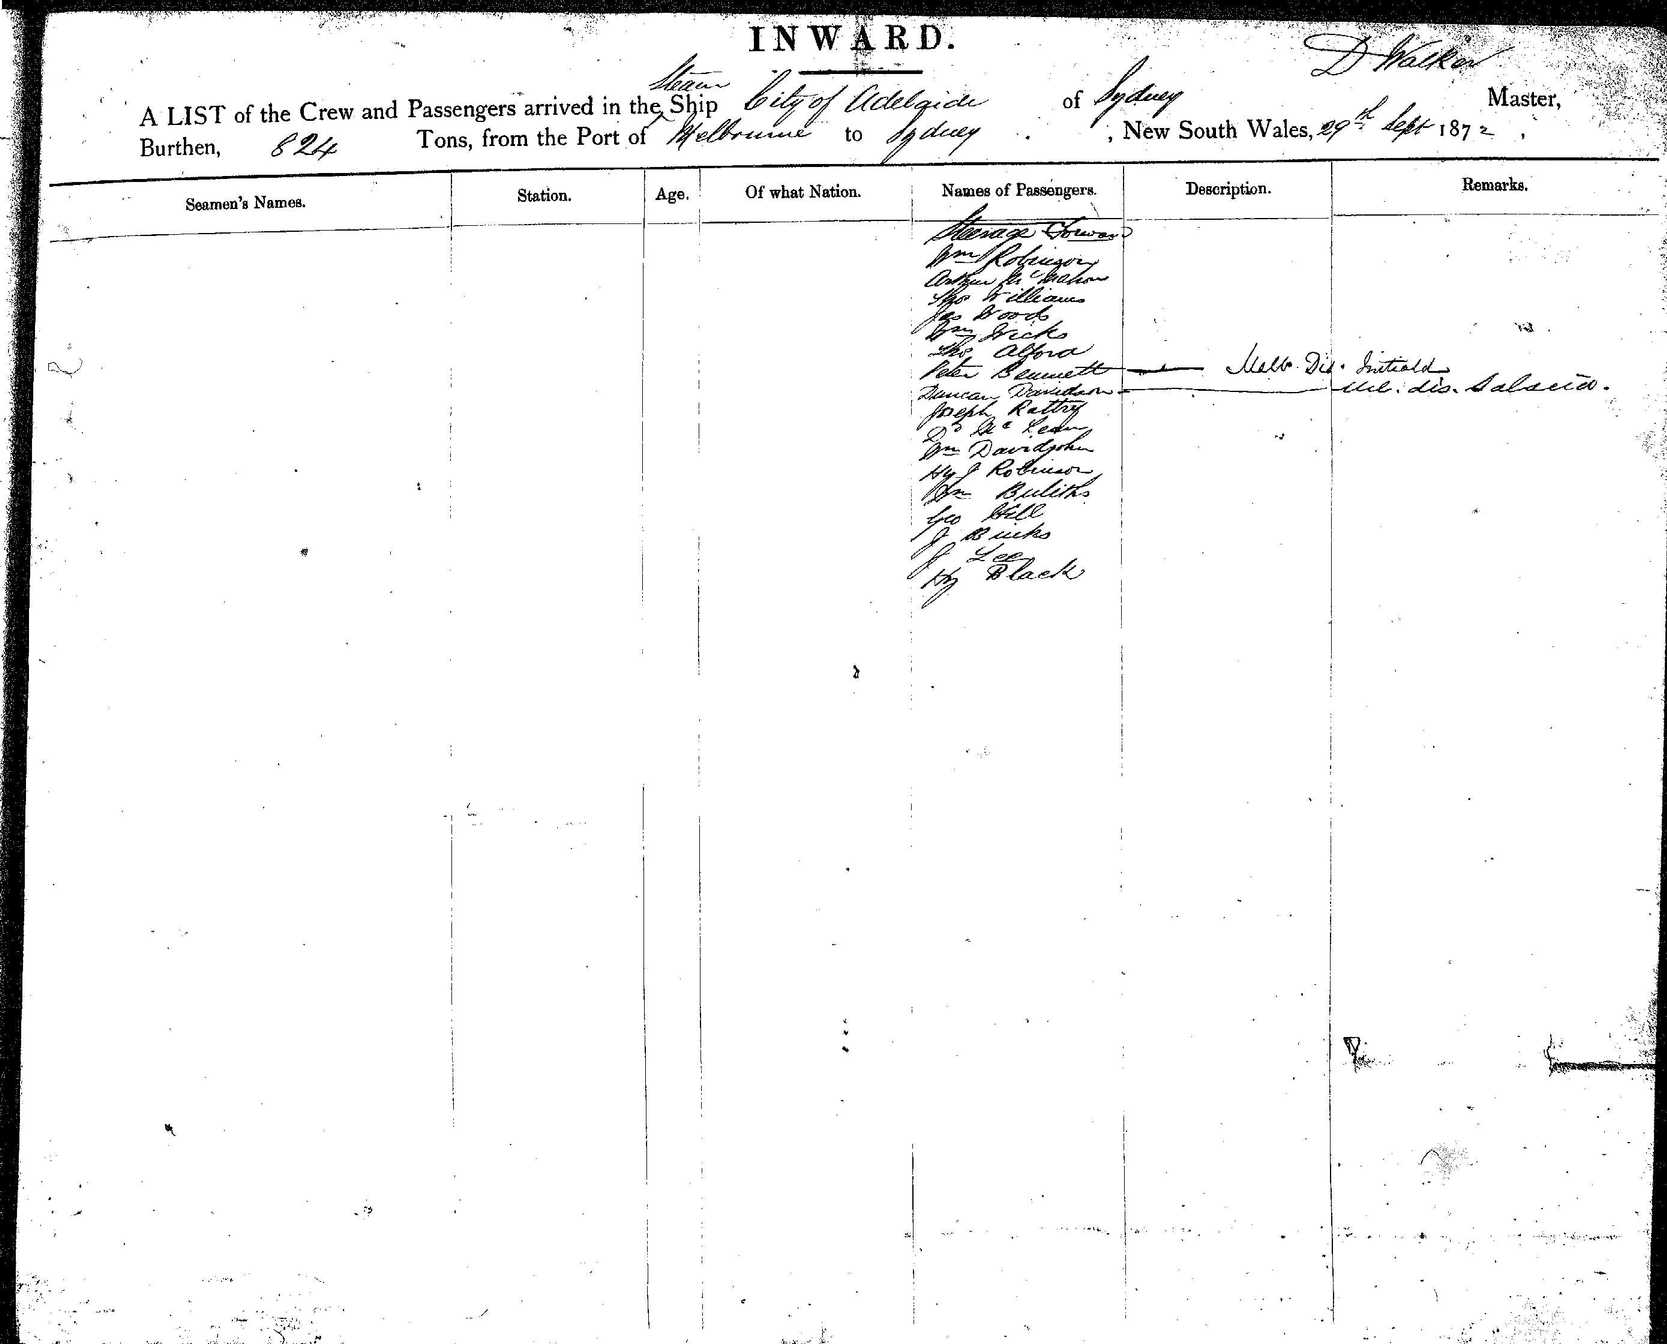 INWARD.
D Walker
Steam
A LIST of the Crew and Passengers arrived in the Ship City of Adelaide of Sydney Master,
Burthen, 824 Tons, from the Port of Melbourne to Sydney , New South Wales, 29th Sept 1872
Seamen's Names. Station. Age. Of what Nation. Names of Passengers. Description. Remarks.
Steerage Forward
Wm Robinson
Arthur McMahon
Thos Williams
Jas Woods
Wm Wicks
Thos Alford
Peter Bennett Melb. Dis.
Duncan Davidson dis.
Joseph Rattry
Do McLean
Wm Davidjohn
Hy J Robinson
Wm
Geo Hill
J Binks
J Lee
Hy Black